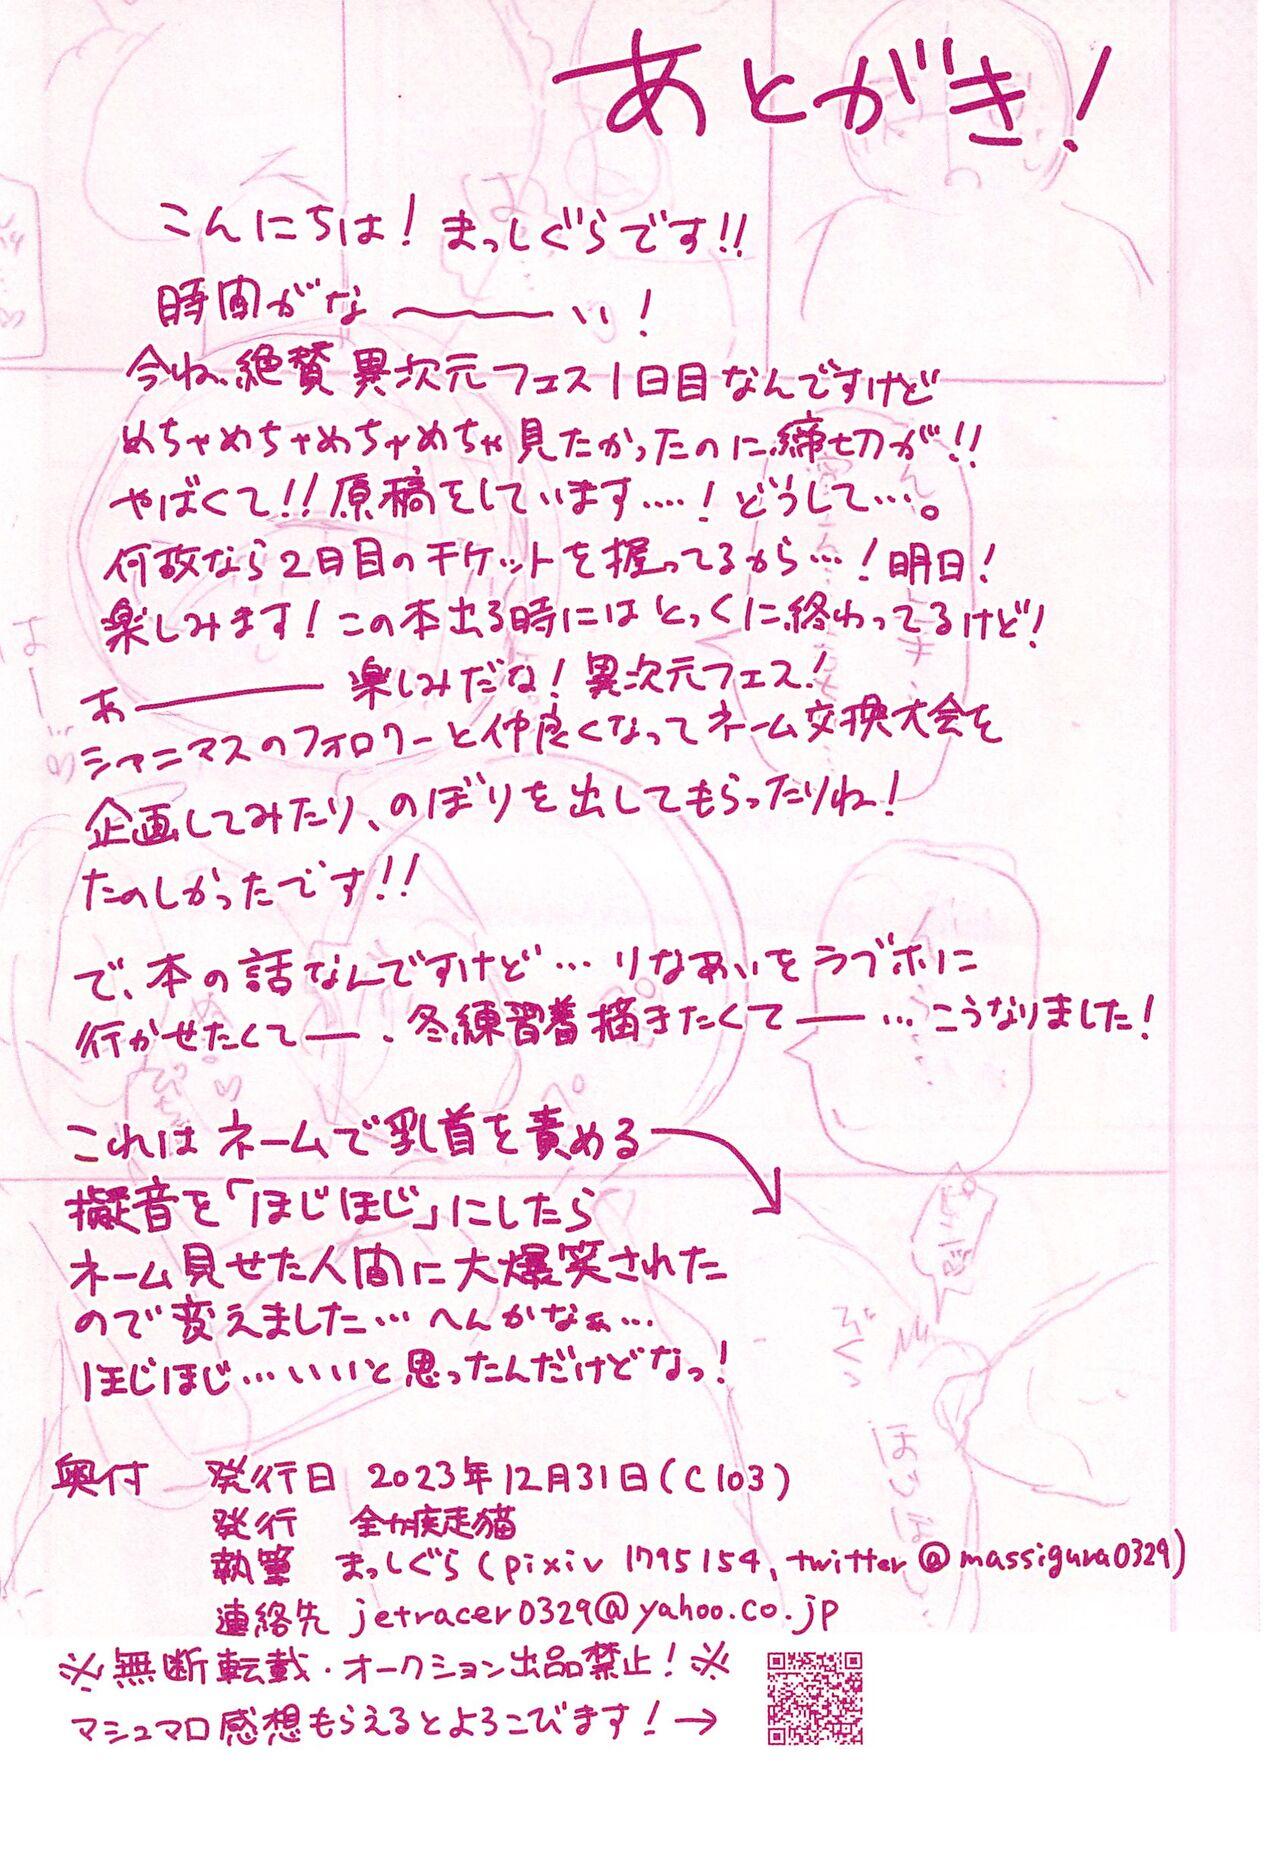 あとがき!
こんにちは! まっしぐらです!!
時間がな――い!
今ね、絶賛 異次元フェス1日目なんですけど
めちゃめちゃめちゃめちゃ見たかったのに締切が!!
やばくて!! 原稿をしています….! どうして…。
何故なら2日目のチケットを握ってるから…! 明日!
楽しみます! この本出る時にはとっくに終わってるけど!
あ――― 楽しみだな! 異次元フェス!
シャニマスのフォロワーと仲良くなってネーム交換大会を
企画してみたり、のぼりを出してもらったりね!
たのしかったです!!
で、本の話なんですけど… りなあいをラブホに
行かせたくて―、冬練習着描きたくて―… こうなりました!
これは ネームで乳首を責める
擬音を「ほじほじ」にしたら
ネーム見せた人間に大爆笑された
ので変えました… へんかなぁ…
ほじほじ…いいと思ったんだけどなっ!
奥付 発行日 2023年12月31日(C103)
発行 全力疾走猫
執筆 まっしぐら(pixiv 1795154、twitter@massigura0329)
連絡先 jetracer0329@yahoo.co.jp
※無断転載・オークション出品禁止!※
マシュマロ感想もらえるとよろこびます!→